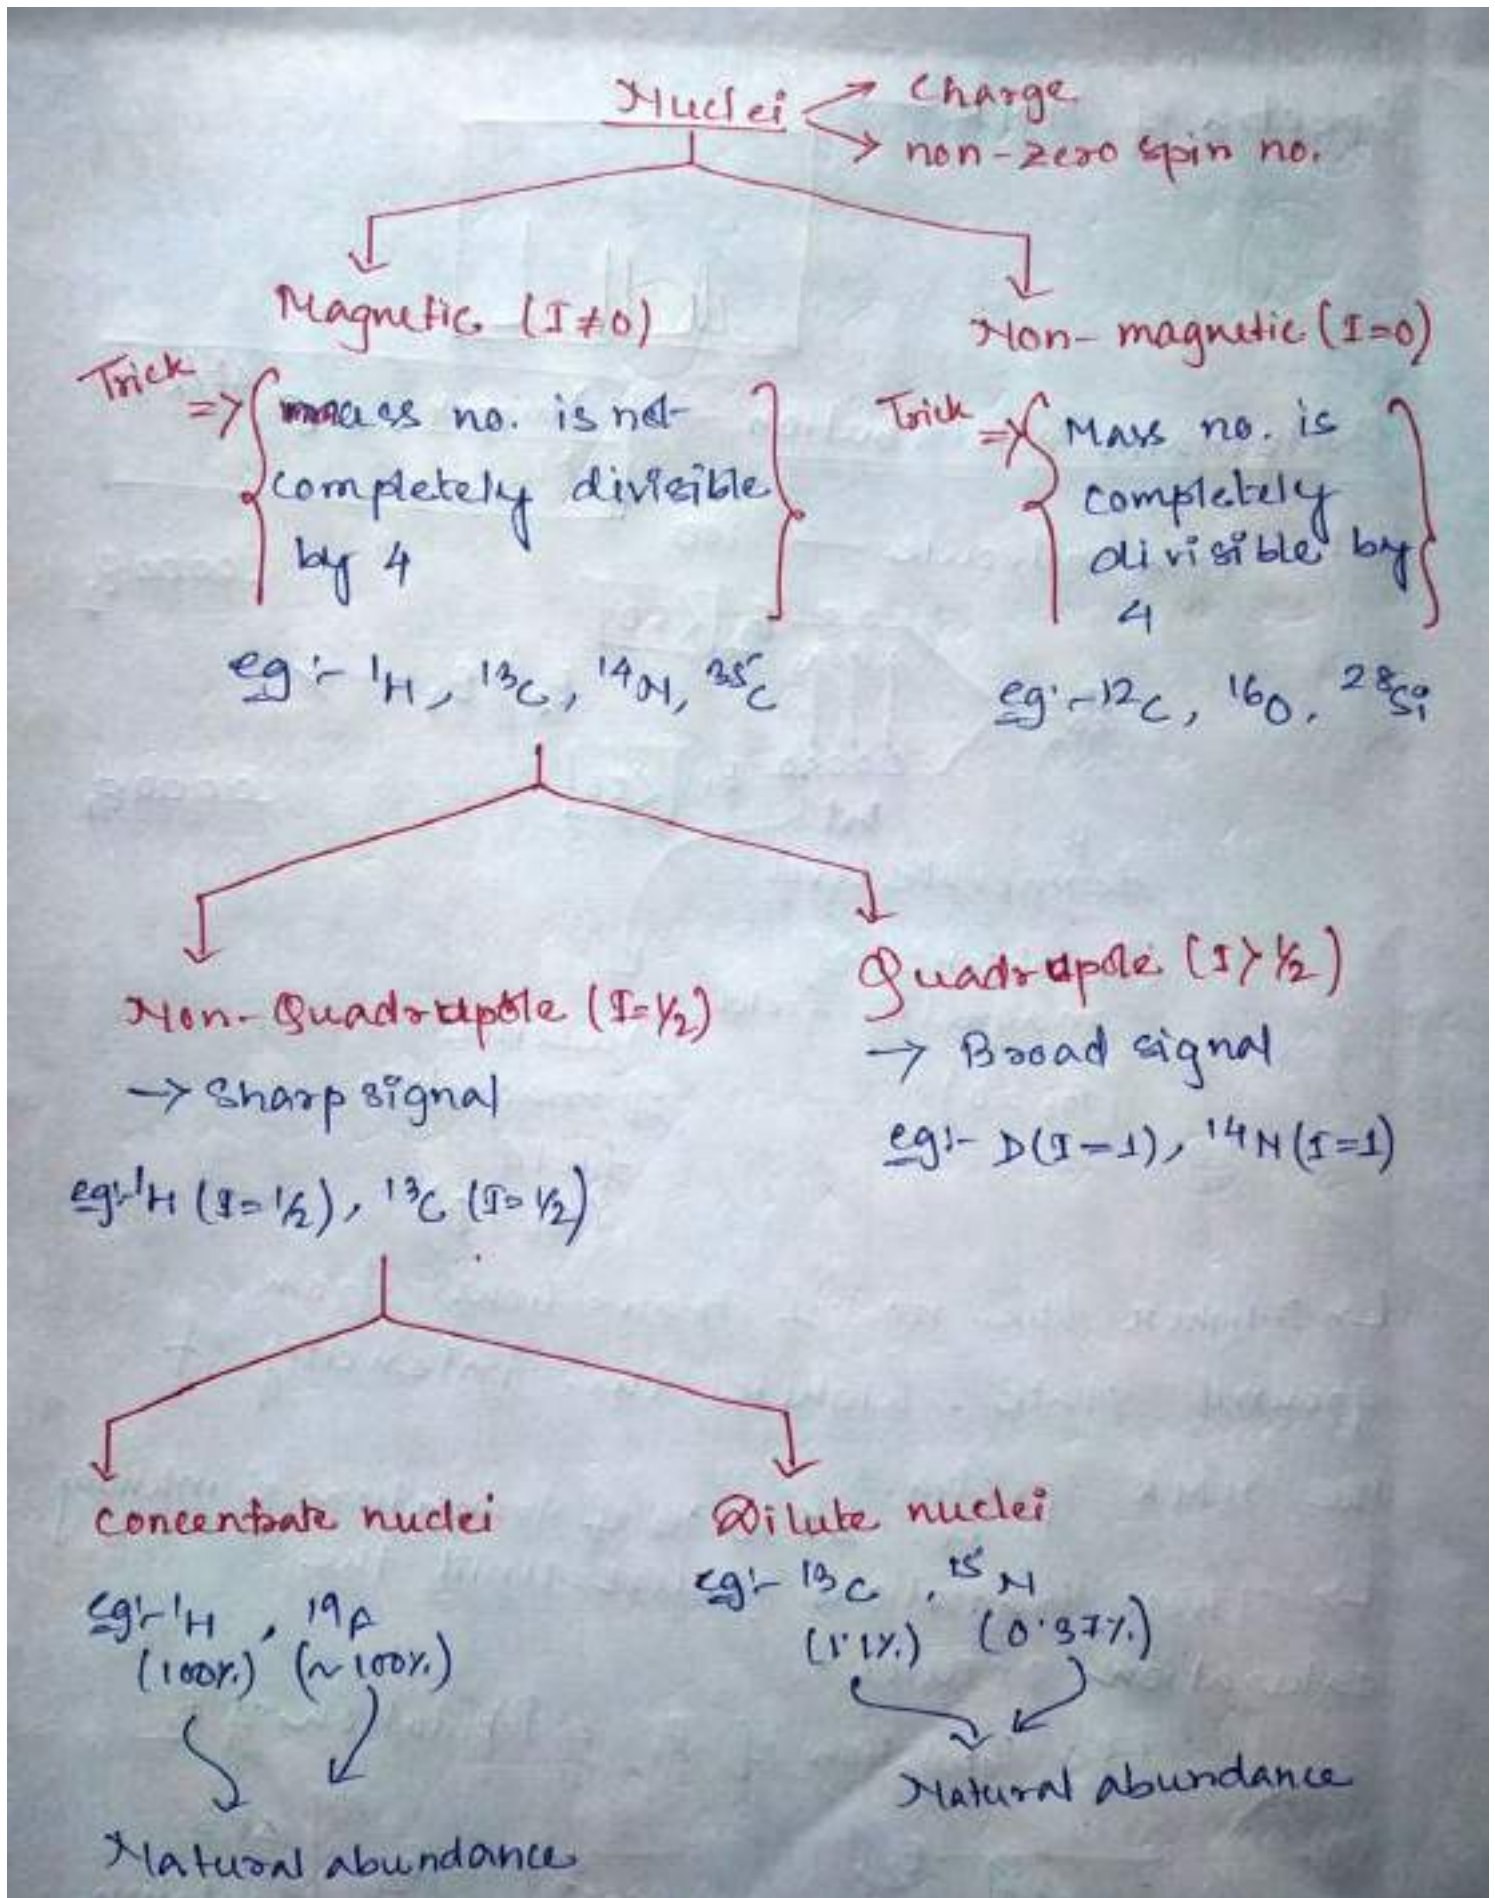 Nuclei → Charge
→ non-zero spin no.
Magnetic (I≠0)
Non-magnetic (I=0)
Trick => { mass no. is not
completely divisible
by 4 }
eg:- ¹H, ¹³C, ¹⁴N, ³⁵C
Trick => { Mass no. is
completely
divisible by
4 }
eg:- ¹²C, ¹⁶O, ²⁸Si
Non-Quadrupole (I=1/2)
→ Sharp signal
eg:- ¹H (I=1/2), ¹³C (I=1/2)
Quadrupole (I>1/2)
→ Broad signal
eg:- D(I=1), ¹⁴N(I=1)
Concentrate nuclei
eg:- ¹H, ¹⁹F
(100%) (~100%)
Natural abundance
Dilute nuclei
eg:- ¹³C, ¹⁵N
(1.1%) (0.37%)
Natural abundance